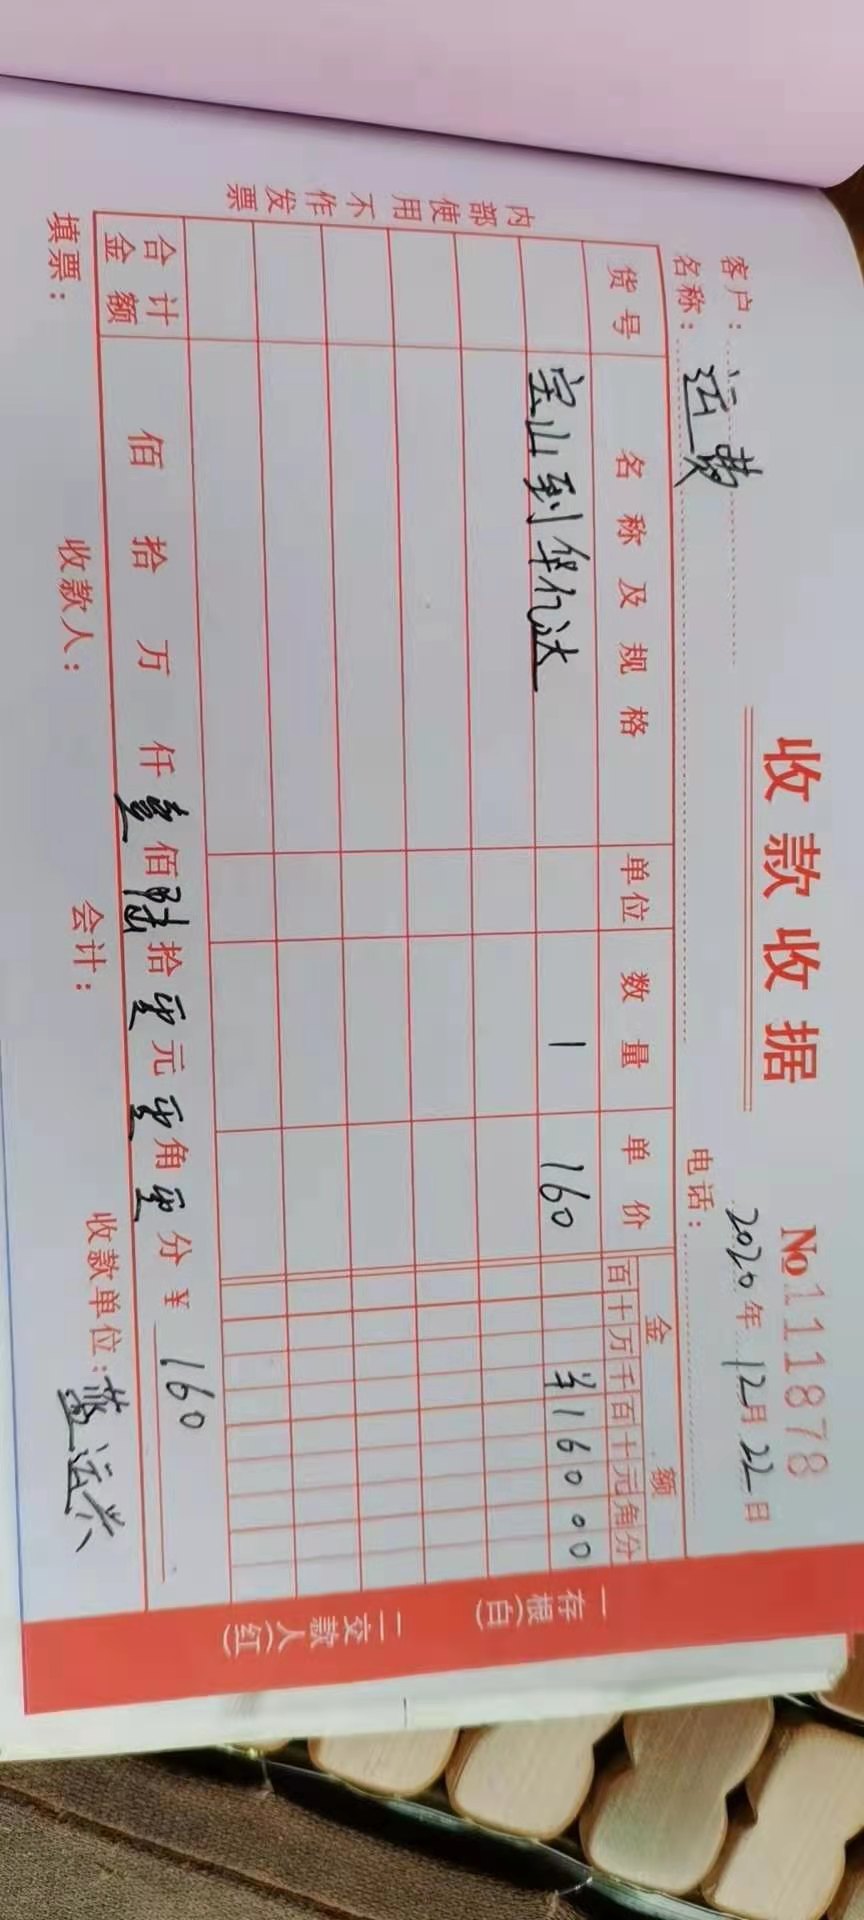 收款收据
No1111878
2020年12月22日
客户名称：运费
电话：
货号 名称及规格 单位 数量 单价 金额
百十万千百十元角分
宝山到华亿达 1 160 ¥16000
合计金额 佰 拾 万 仟壹佰陆拾零元零角零分¥160
填票： 收款人： 会计： 收款单位：蓝运兴
内部使用不作发票
一存根(白)
二交款人(红)